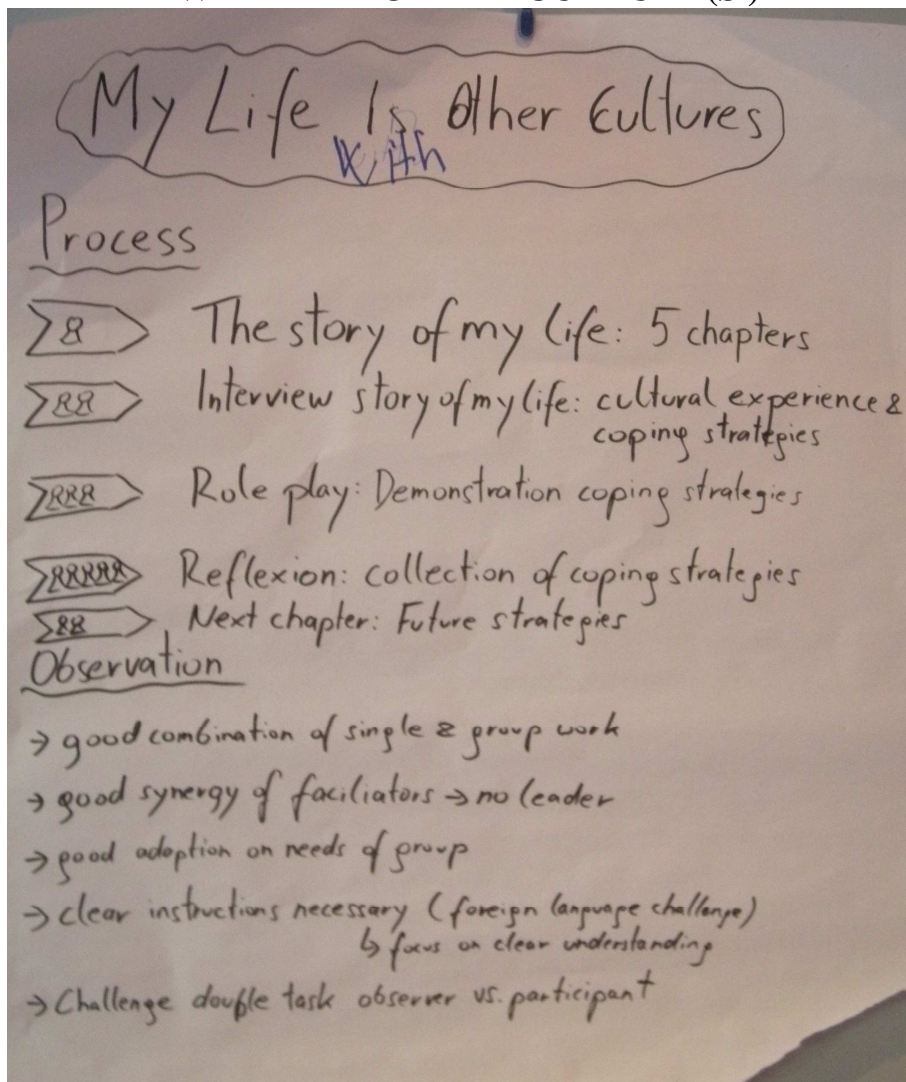 My Life Is Other Cultures
with
Process
8 The story of my life: 5 chapters
88 Interview story of my life: cultural experience &
coping strategies
888 Role play: Demonstration coping strategies
88888 Reflexion: collection of coping strategies
88 Next chapter: Future strategies
Observation
→ good combination of single & group work
→ good synergy of faciliators → no leader
→ good adoption on needs of group
→ clear instructions necessary (foreign language challenge)
↳ focus on clear understanding
→ Challenge double task observer vs. participant